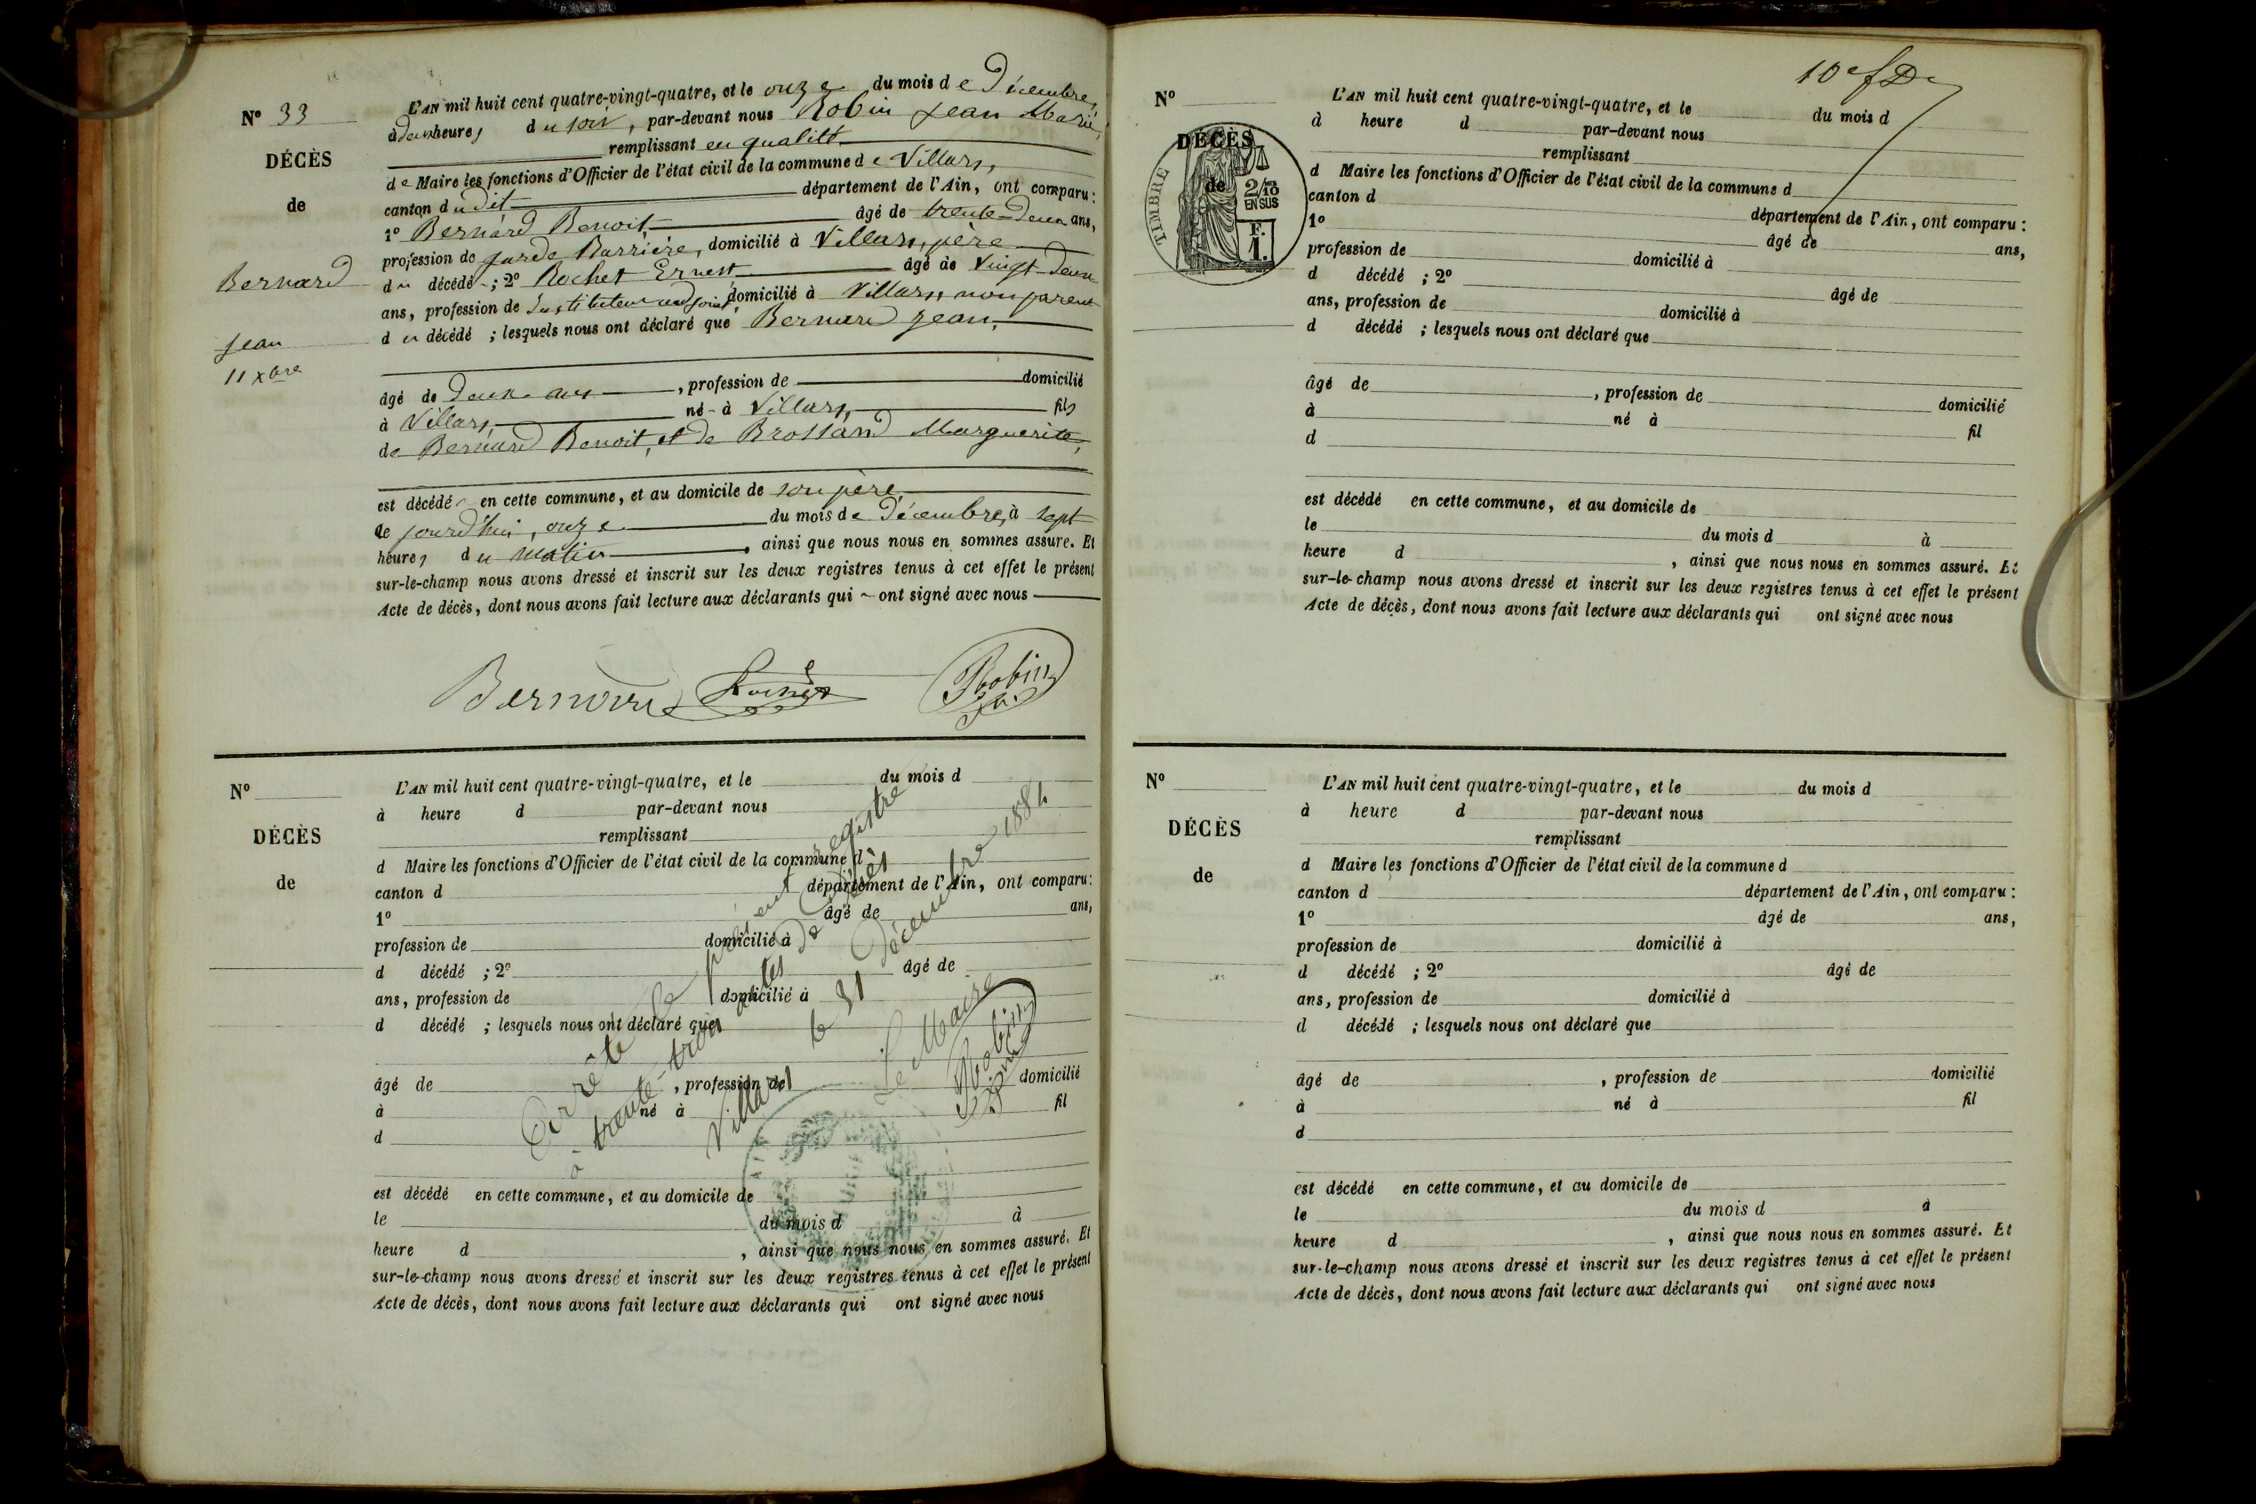 N° 33
DÉCÈS
de
Bernard
Jean
11 xbre
L'AN mil huit cent quatre-vingt-quatre, et le onze du mois de Décembre,
à deux heures du soir, par-devant nous Robin Jean Marie,
remplissant en qualité
de Maire les fonctions d'Officier de l'état civil de la commune de Villars,
canton dudit département de l'Ain, ont comparu :
1° Bernard Benoit, âgé de trente-deux ans,
profession de garde Barrière, domicilié à Villars, père
du décédé ; 2° Rochet Ernest âgé de vingt-deux
ans, profession de Instituteur adjoint domicilié à Villars, non parent
du décédé ; lesquels nous ont déclaré que Bernard Jean,
âgé de deux ans , profession de domicilié
à Villars, né à Villars, fils
de Bernard Benoit, et de Brossard Marguerite,
est décédé en cette commune, et au domicile de son père
le jourd'hui, onze du mois de Décembre, à sept
heures du matin , ainsi que nous nous en sommes assuré. Et
sur-le-champ nous avons dressé et inscrit sur les deux registres tenus à cet effet le présent
Acte de décès, dont nous avons fait lecture aux déclarants qui ont signé avec nous
Bernard Robin
N°
DÉCÈS
de
L'AN mil huit cent quatre-vingt-quatre, et le du mois d
à heure d par-devant nous
remplissant
d Maire les fonctions d'Officier de l'état civil de la commune d
canton d département de l'Ain, ont comparu :
1° âgé de ans,
profession de domicilié à
d décédé ; 2° âgé de
ans, profession de domicilié à
d décédé ; lesquels nous ont déclaré que
âgé de , profession de domicilié
à né à fil
d
est décédé en cette commune, et au domicile de
le du mois d à
heure d , ainsi que nous nous en sommes assuré. Et
sur-le-champ nous avons dressé et inscrit sur les deux registres tenus à cet effet le présent
Acte de décès, dont nous avons fait lecture aux déclarants qui ont signé avec nous
Arrêté le présent registre
à trente-trois actes de décès
Villars le 31 Décembre 1884
Le Maire
Robin
10e f
N°
DÉCÈS
de
TIMBRE
2/10
EN SUS
F.
1.
L'AN mil huit cent quatre-vingt-quatre, et le du mois d
à heure d par-devant nous
remplissant
d Maire les fonctions d'Officier de l'état civil de la commune d
canton d département de l'Ain, ont comparu :
1° âgé de ans,
profession de domicilié à
d décédé ; 2° âgé de
ans, profession de domicilié à
d décédé ; lesquels nous ont déclaré que
âgé de , profession de domicilié
à né à fil
d
est décédé en cette commune, et au domicile de
le du mois d à
heure d , ainsi que nous nous en sommes assuré. Et
sur-le-champ nous avons dressé et inscrit sur les deux registres tenus à cet effet le présent
Acte de décès, dont nous avons fait lecture aux déclarants qui ont signé avec nous
N°
DÉCÈS
de
L'AN mil huit cent quatre-vingt-quatre, et le du mois d
à heure d par-devant nous
remplissant
d Maire les fonctions d'Officier de l'état civil de la commune d
canton d département de l'Ain, ont comparu :
1° âgé de ans,
profession de domicilié à
d décédé ; 2° âgé de
ans, profession de domicilié à
d décédé ; lesquels nous ont déclaré que
âgé de , profession de domicilié
à né à fil
d
est décédé en cette commune, et au domicile de
le du mois d à
heure d , ainsi que nous nous en sommes assuré. Et
sur-le-champ nous avons dressé et inscrit sur les deux registres tenus à cet effet le présent
Acte de décès, dont nous avons fait lecture aux déclarants qui ont signé avec nous